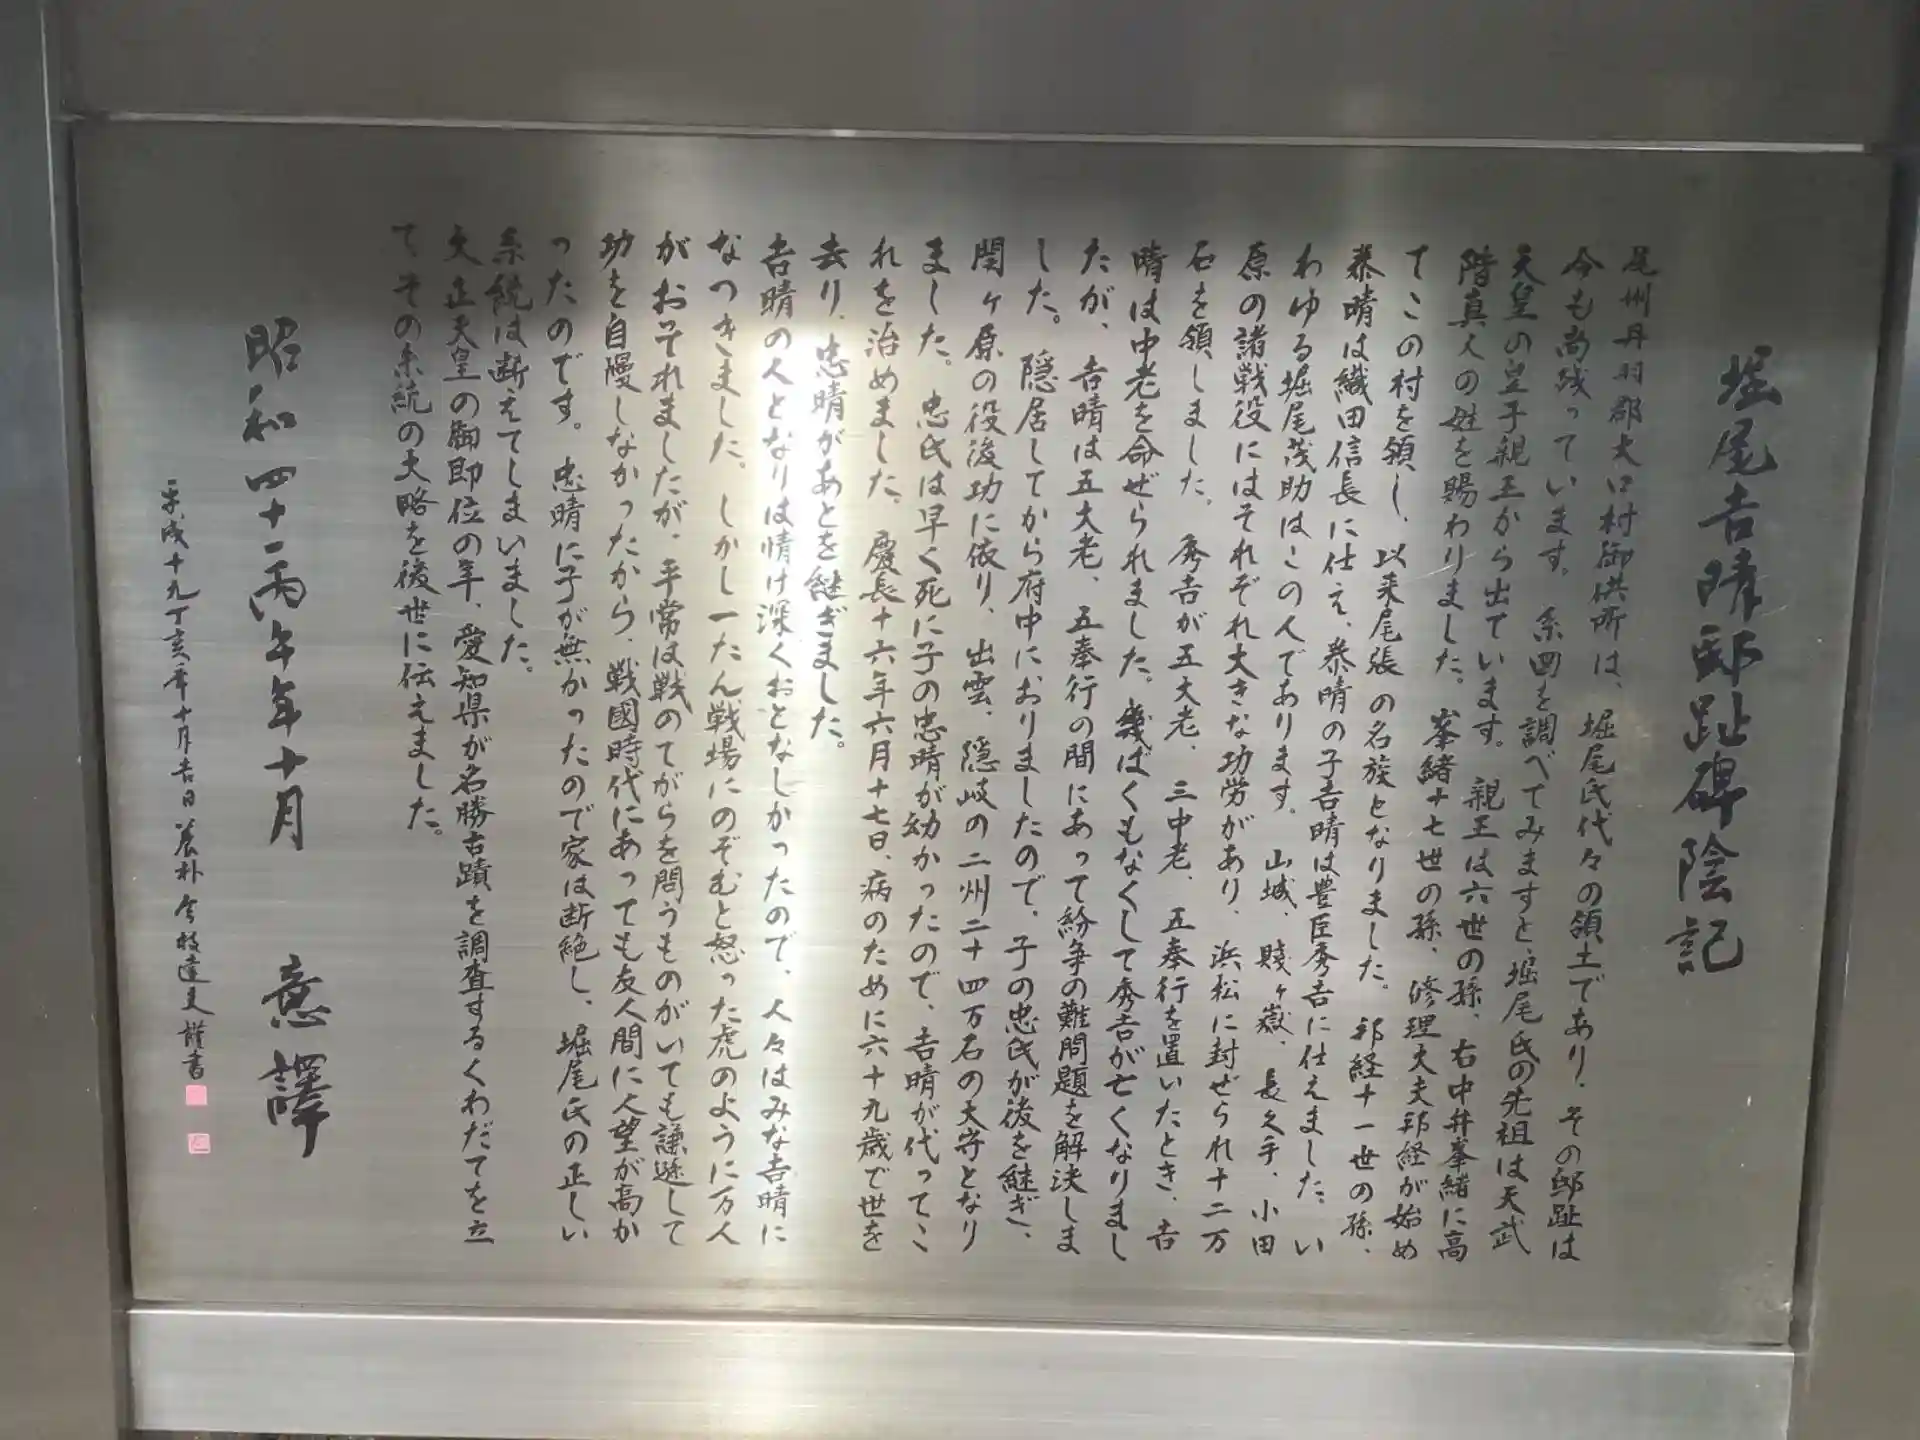 堀尾吉晴邸趾碑陰記
尾州丹羽郡大口村御供所は、堀尾氏代々の領土であり、その邸趾は
今も尚残っています。系図を調べてみますと、堀尾氏の先祖は天武
天皇の皇子親王から出ています。親王は六世の孫、右中弁峯緒に高
階真人の姓を賜わりました。峯緒十七世の孫、修理大夫邦経が始め
てこの村を領し、以来尾張の名族となりました。邦経十一世の孫、
泰晴は織田信長に仕え、泰晴の子吉晴は豊臣秀吉に仕えました。い
わゆる堀尾茂助はこの人であります。山城、賤ヶ嶽、長久手、小田
原の諸戦役にはそれぞれ大きな功労があり、浜松に封ぜられ十二万
石を領しました。秀吉が五大老、三中老、五奉行を置いたとき、吉
晴は中老を命ぜられました。幾ばくもなくして秀吉が亡くなりまし
たが、吉晴は五大老、五奉行の間にあって紛争の難問題を解決しま
した。隠居してから府中におりましたので、子の忠氏が後を継ぎ、
関ヶ原の役後功に依り、出雲、隠岐の二州二十四万石の大守となり
ました。忠氏は早く死に子の忠晴が幼かったので、吉晴が代ってこ
れを治めました。慶長十六年六月十七日、病のために六十九歳で世を
去り、忠晴があとを継ぎました。
吉晴の人となりは情け深くおとなしかったので、人々はみな吉晴に
なつきました。しかし一たん戦場にのぞむと怒った虎のように万人
がおそれましたが、平常は戦のてがらを問うものがいても謙遜して
功を自慢しなかったから、戦國時代にあっても友人間に人望が高か
ったのです。忠晴に子が無かったので家は断絶し、堀尾氏の正しい
系統は断えてしまいました。
大正天皇の御即位の年、愛知県が名勝古蹟を調査するくわだてを立
てその系統の大略を後世に伝えました。
昭和四十一丙午年十月 意譯
平成十九丁亥年十月吉日 今枝達夫謹書